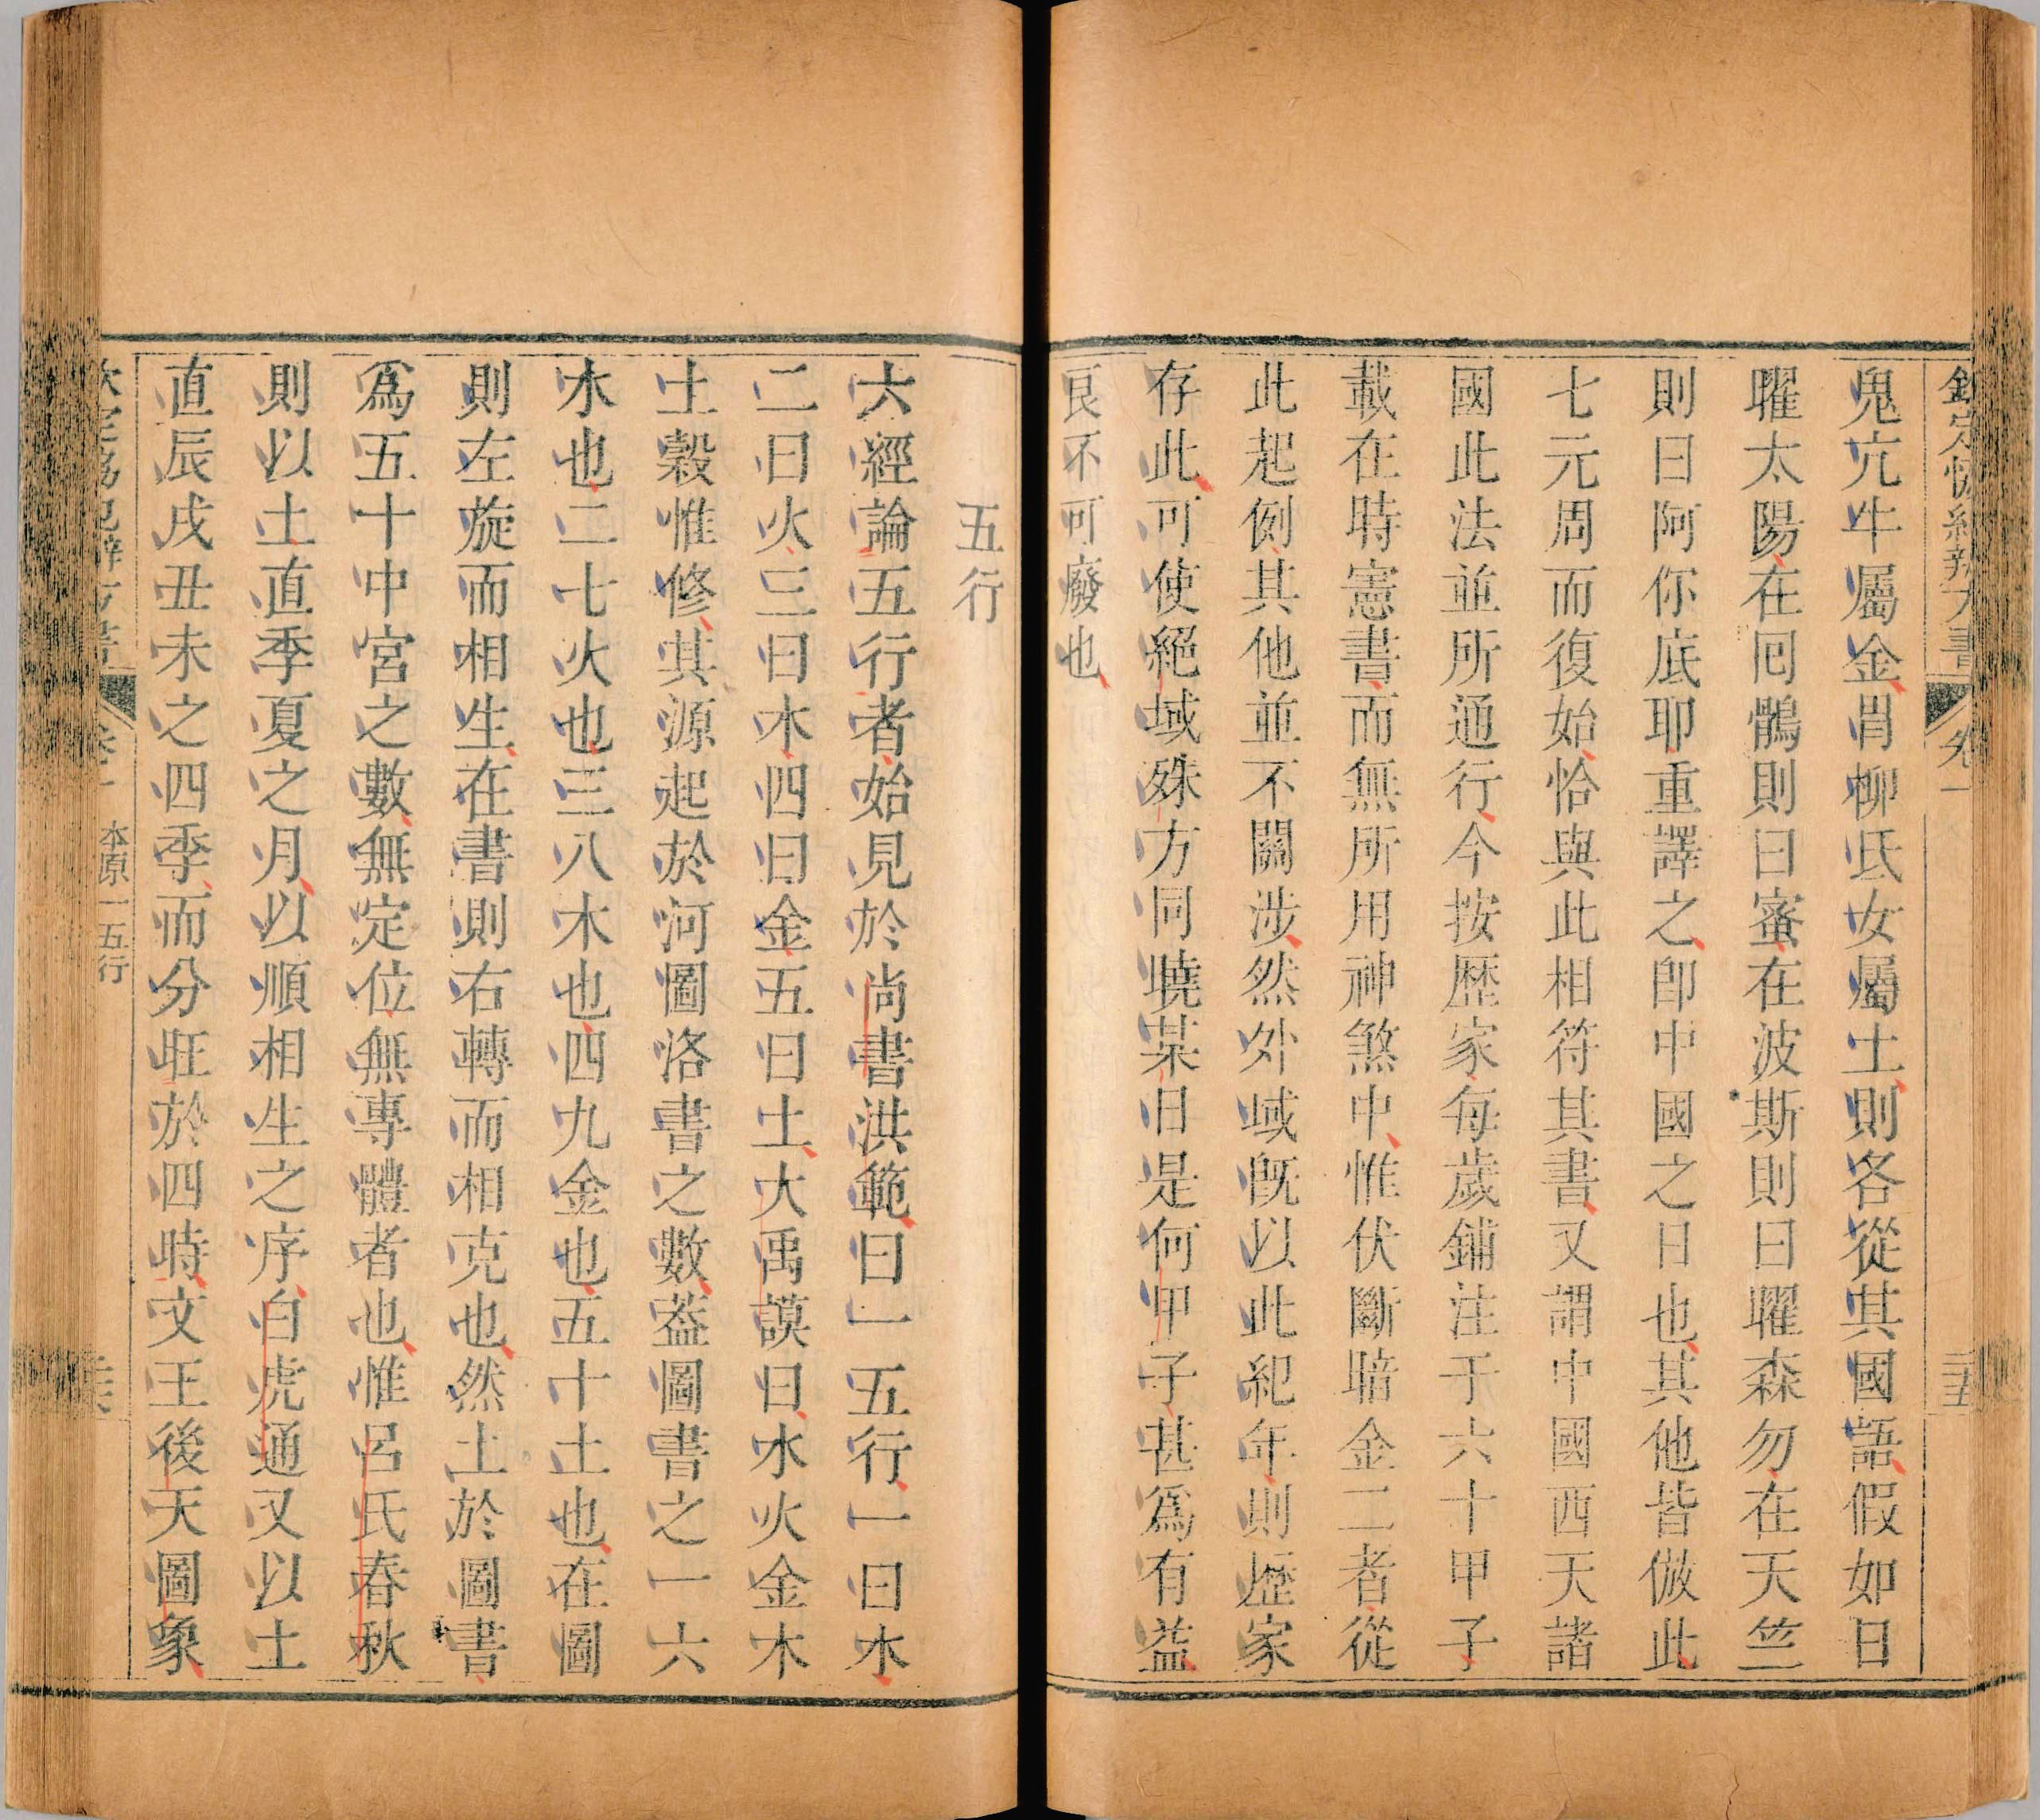 欽定協紀辨方書 卷一 三五
鬼亢牛屬金肖柳氐女屬土則各從其國語假如日
曜太陽在囘鶻則曰蜜在波斯則曰曜森勿在天竺
則曰阿你底耶重譯之卽中國之日也其他皆倣此
七元周而復始恰與此相符其書又謂中國西天諸
國此法並所通行今按歷家每歲鋪注于六十甲子
載在時憲書而無所用神煞中惟伏斷暗金二者從
此起例其他並不關涉然外域旣以此紀年則歷家
存此可使絕域殊方同曉某日是何甲子甚爲有益
良不可廢也
五行
六經論五行者始見於尚書洪範曰一五行一曰水
二曰火三曰木四曰金五曰土大禹謨曰水火金木
土穀惟修其源起於河圖洛書之數葢圖書之一六
水也二七火也三八木也四九金也五十土也在圖
則左旋而相生在書則右轉而相克也然土於圖書
爲五十中宮之數無定位無專體者也惟呂氏春秋
則以土直季夏之月以順相生之序白虎通又以土
直辰戌丑未之四季而分旺於四時文王後天圖象
本原一五行